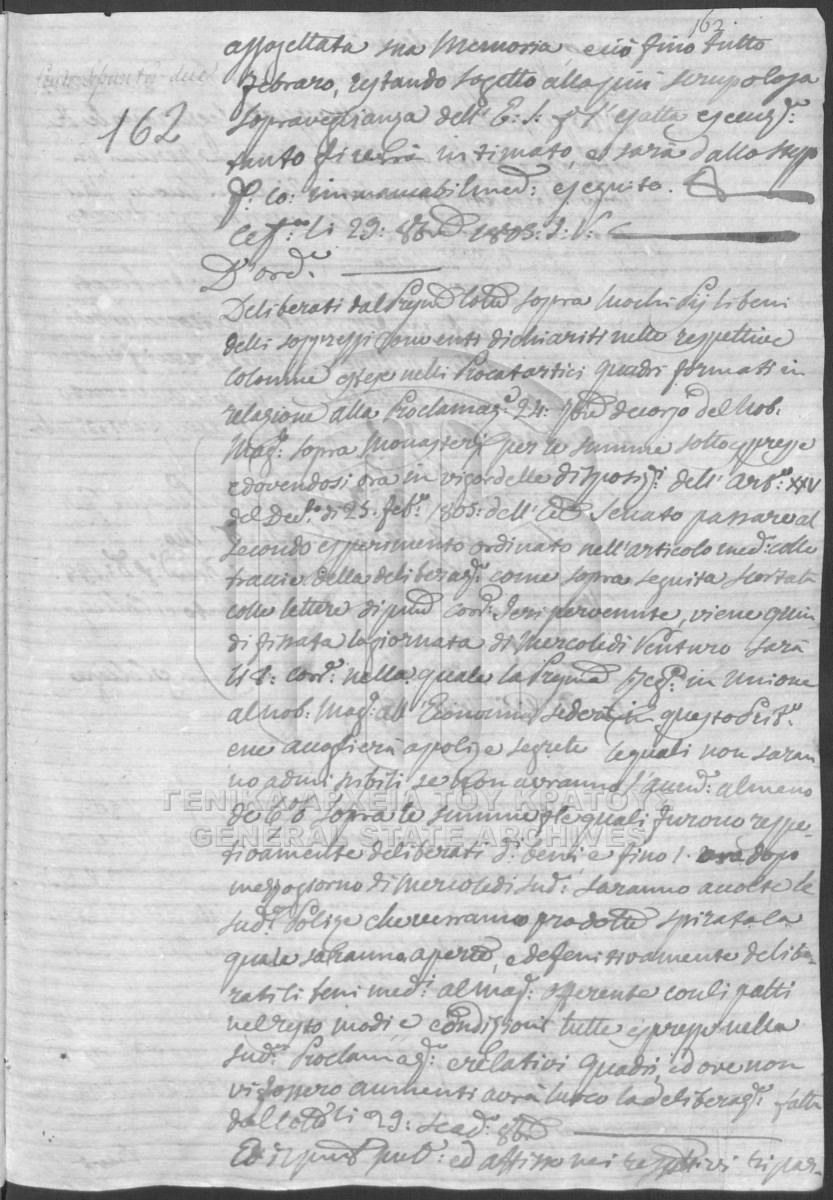 162.
162
assogettata sua Memoria, e ciò fino tutto
Febraro, restando sogetto alla più scrupolosa
sopraveglianza dell' E: S: p l' esatta esecuz:
tanto li verrà intimato, e sarà dallo stesso
immancabilmed: eseguito.
li 29: 8bre 1803: S: V:
D'ord.e
Deliberati dal Pred. sopra luochi Pij li beni
delli soppressi Conventi dichiariti nelle respettive
Colonne nelli Procatartici quadri formati in
relazione alla Proclamaz.e 24: 7bre decorso del Nob.
Mag: sopra Monasterj per le summe sottoespresse
e dovendosi ora in vigor delle disposiz: dell' Art.o XXV
del Dec.to di 25. feb.o 1803: dell' Senato passare al
secondo esperimento ordinato nell'articolo med: colle
traccie della deliberaz.e come sopra seguita
colle lettere di Jeri pervenute, viene quin-
di fissata la giornata di Mercoledì Venturo sarà
li cor.e nella quale la in Unione
al nob: Mag: all' Economia sederà in questo
ene accoglierà a polize segrete le quali non saran-
no admissibili se non avranno l'aum: almeno
de 6 % sopra le summe p le quali furono respe-
tivamente deliberati d.i beni, e fino 1. ora dopo
mezzogiorno di Mercoledì sud: saranno accolte le
sud.e Polize che verranno prodotte spirata la
quale saranno aperte, e defenitivamente delibe-
rati li beni med.i al mag: offerente con li patti
nel resto modi e condizioni tutte espresse nella
sud.a Proclamaz.e e relativi Quadri, ed ove non
vi fossero aumenti avrà luoco la deliberaz.e fatta
dal li 29: scad: 8bre
Ed il pub: ed affisso nei respettivi ripar-
ΓΕΝΙΚΑ ΑΡΧΕΙΑ ΤΟΥ ΚΡΑΤΟΥΣ
GENERAL STATE ARCHIVES